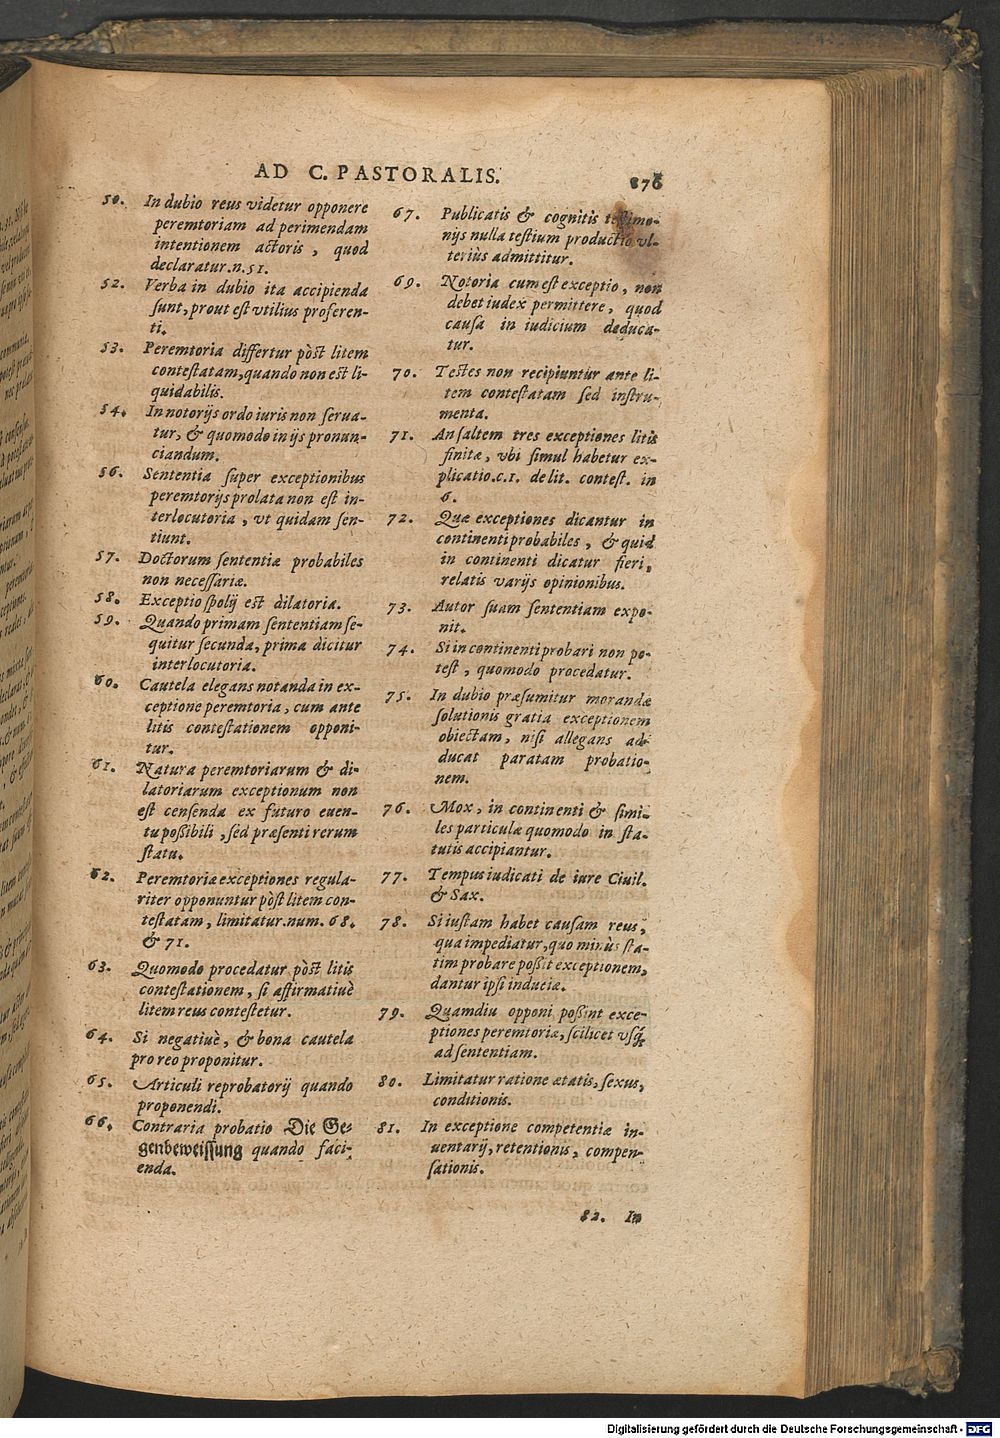 AD C. PASTORALIS.
876
50. In dubio reus videtur opponere
peremtoriam ad perimendam
intentionem actoris, quod
declaratur.n.51.
52. Verba in dubio ita accipienda
ſunt, prout eſt vtilius proferen-
ti.
53. Peremtoria differtur pòſt litem
conteſtatam, quando non eſt li-
quidabilis.
54. In notorijs ordo iuris non ſerua-
tur, & quomodo in ijs pronun-
ciandum.
56. Sententia ſuper exceptionibus
peremtorijs prolata non eſt in-
terlocutoria, vt quidam ſen-
tiunt.
57. Doctorum ſententiæ probabiles
non neceſſariæ.
58. Exceptio ſpolij eſt dilatoria.
59. Quando primam ſententiam ſe-
quitur ſecunda, prima dicitur
interlocutoria.
60. Cautela elegans notanda in ex-
ceptione peremtoria, cum ante
litis conteſtationem opponi-
tur.
61. Natura peremtoriarum & di-
latoriarum exceptionum non
eſt cenſenda ex futuro euen-
tu poßibili, ſed præſenti rerum
ſtatu.
62. Peremtoriæ exceptiones regula-
riter opponuntur pòſt litem con-
teſtatam, limitatur.num. 68.
& 71.
63. Quomodo procedatur pòſt litis
conteſtationem, ſi affirmatiuè
litem reus conteſtetur.
64. Si negatiuè, & bona cautela
pro reo proponitur.
65. Articuli reprobatorij quando
proponendi.
66. Contraria probatio Die Ge-
genbeweiſſung quando faci-
enda.
67. Publicatis & cognitis teſtimo-
nijs nulla teſtium productio vl-
teriùs admittitur.
69. Notoria cum eſt exceptio, non
debet iudex permittere, quod
cauſa in iudicium deduca-
tur.
70. Teſtes non recipiuntur ante li-
tem conteſtatam ſed inſtru-
menta.
71. An ſaltem tres exceptiones litis
finitæ, vbi ſimul habetur ex-
plicatio.c.1. de lit. conteſt. in
6.
72. Quæ exceptiones dicantur in
continenti probabiles, & quid
in continenti dicatur fieri,
relatis varijs opinionibus.
73. Autor ſuam ſententiam expo-
nit.
74. Si in continenti probari non po-
teſt, quomodo procedatur.
75. In dubio præſumitur morandæ
ſolutionis gratia exceptionem
obiectam, niſi allegans ad-
ducat paratam probatio-
nem.
76. Mox, in continenti & ſimi-
les particulæ quomodo in ſta-
tutis accipiantur.
77. Tempus iudicati de iure Ciuil.
& Sax.
78. Si iuſtam habet cauſam reus,
qua impediatur, quo minùs ſta-
tim probare poßit exceptionem,
dantur ipſi induciæ.
79. Quamdiu opponi poßint exce-
ptiones peremtoriæ, ſcilicet vſq́;
ad ſententiam.
80. Limitatur ratione ætatis, ſexus,
conditionis.
81. In exceptione competentiæ in-
uentarij, retentionis, compen-
ſationis.
82. In
Digitalisierung gefördert durch die Deutsche Forschungsgemeinschaft - DFG